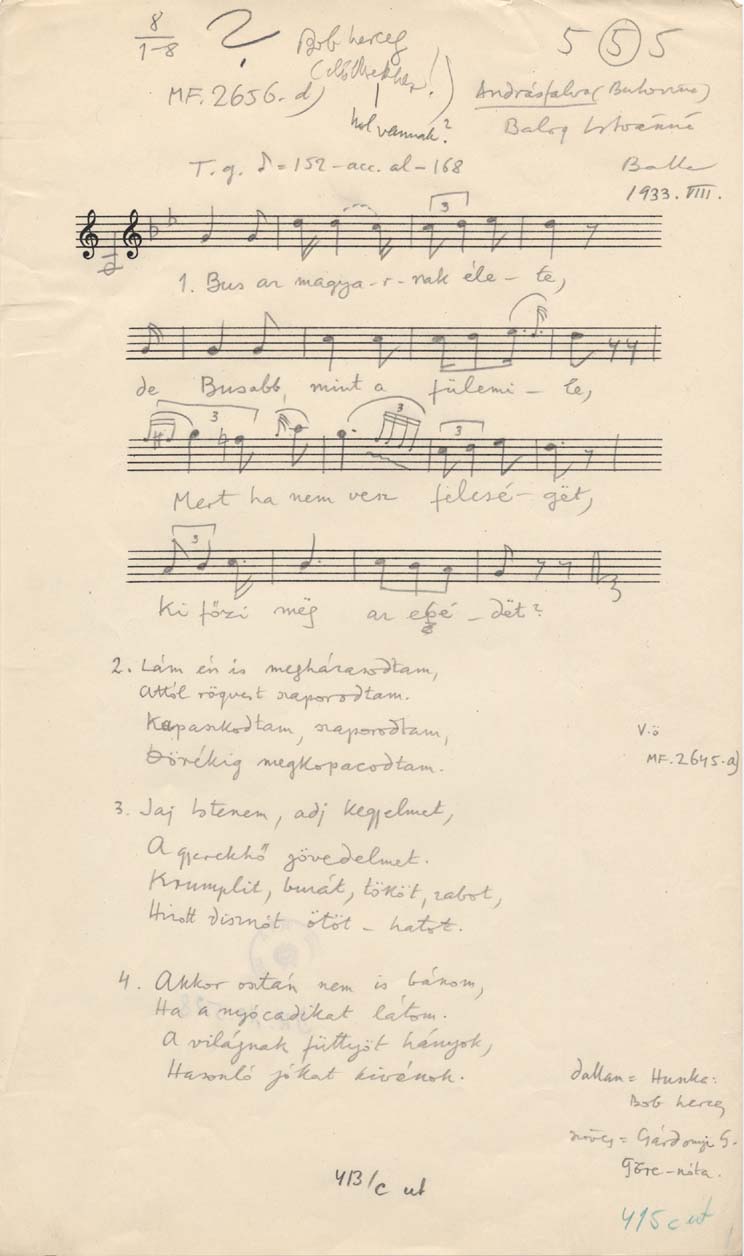 8
1-8
?
Bob herceg
5 5 5
MF. 2656. d)
hol vannak?
Andrásfalva (Bukovina)
Balog Istvánné
T. g. ♪ = 152 - acc. al - 168
Balla
1933. VIII.
3
1. Bus az magya-r-nak éle-te,
de Busabb, mint a fülemi-le,
3 3 3
Mert ha nem vesz felesé-gët,
3
Ki főzi mëg az ebé-dët?
2. Lám én is megházasodtam,
Attól rögvest szaporodtam.
Kapaszkodtam, szaporodtam,
Dërékig megkopacodtam.
V.ö
MF. 2645. a)
3. Jaj Istenem, adj kegyelmet,
A gyerekhő jövedelmet.
Krumplit, buzát, tököt, zabot,
Hizott disznót ötöt - hatot.
4. Akkor osztán nem is bánom,
Ha a nyócadikat látom.
A világnak füttyöt hányok,
Hasonló jókat kivánok.
dallam = Huszka:
Bob herceg
szöveg = Gárdonyi G.
Göre-nóta.
413/c ut
415 c ut